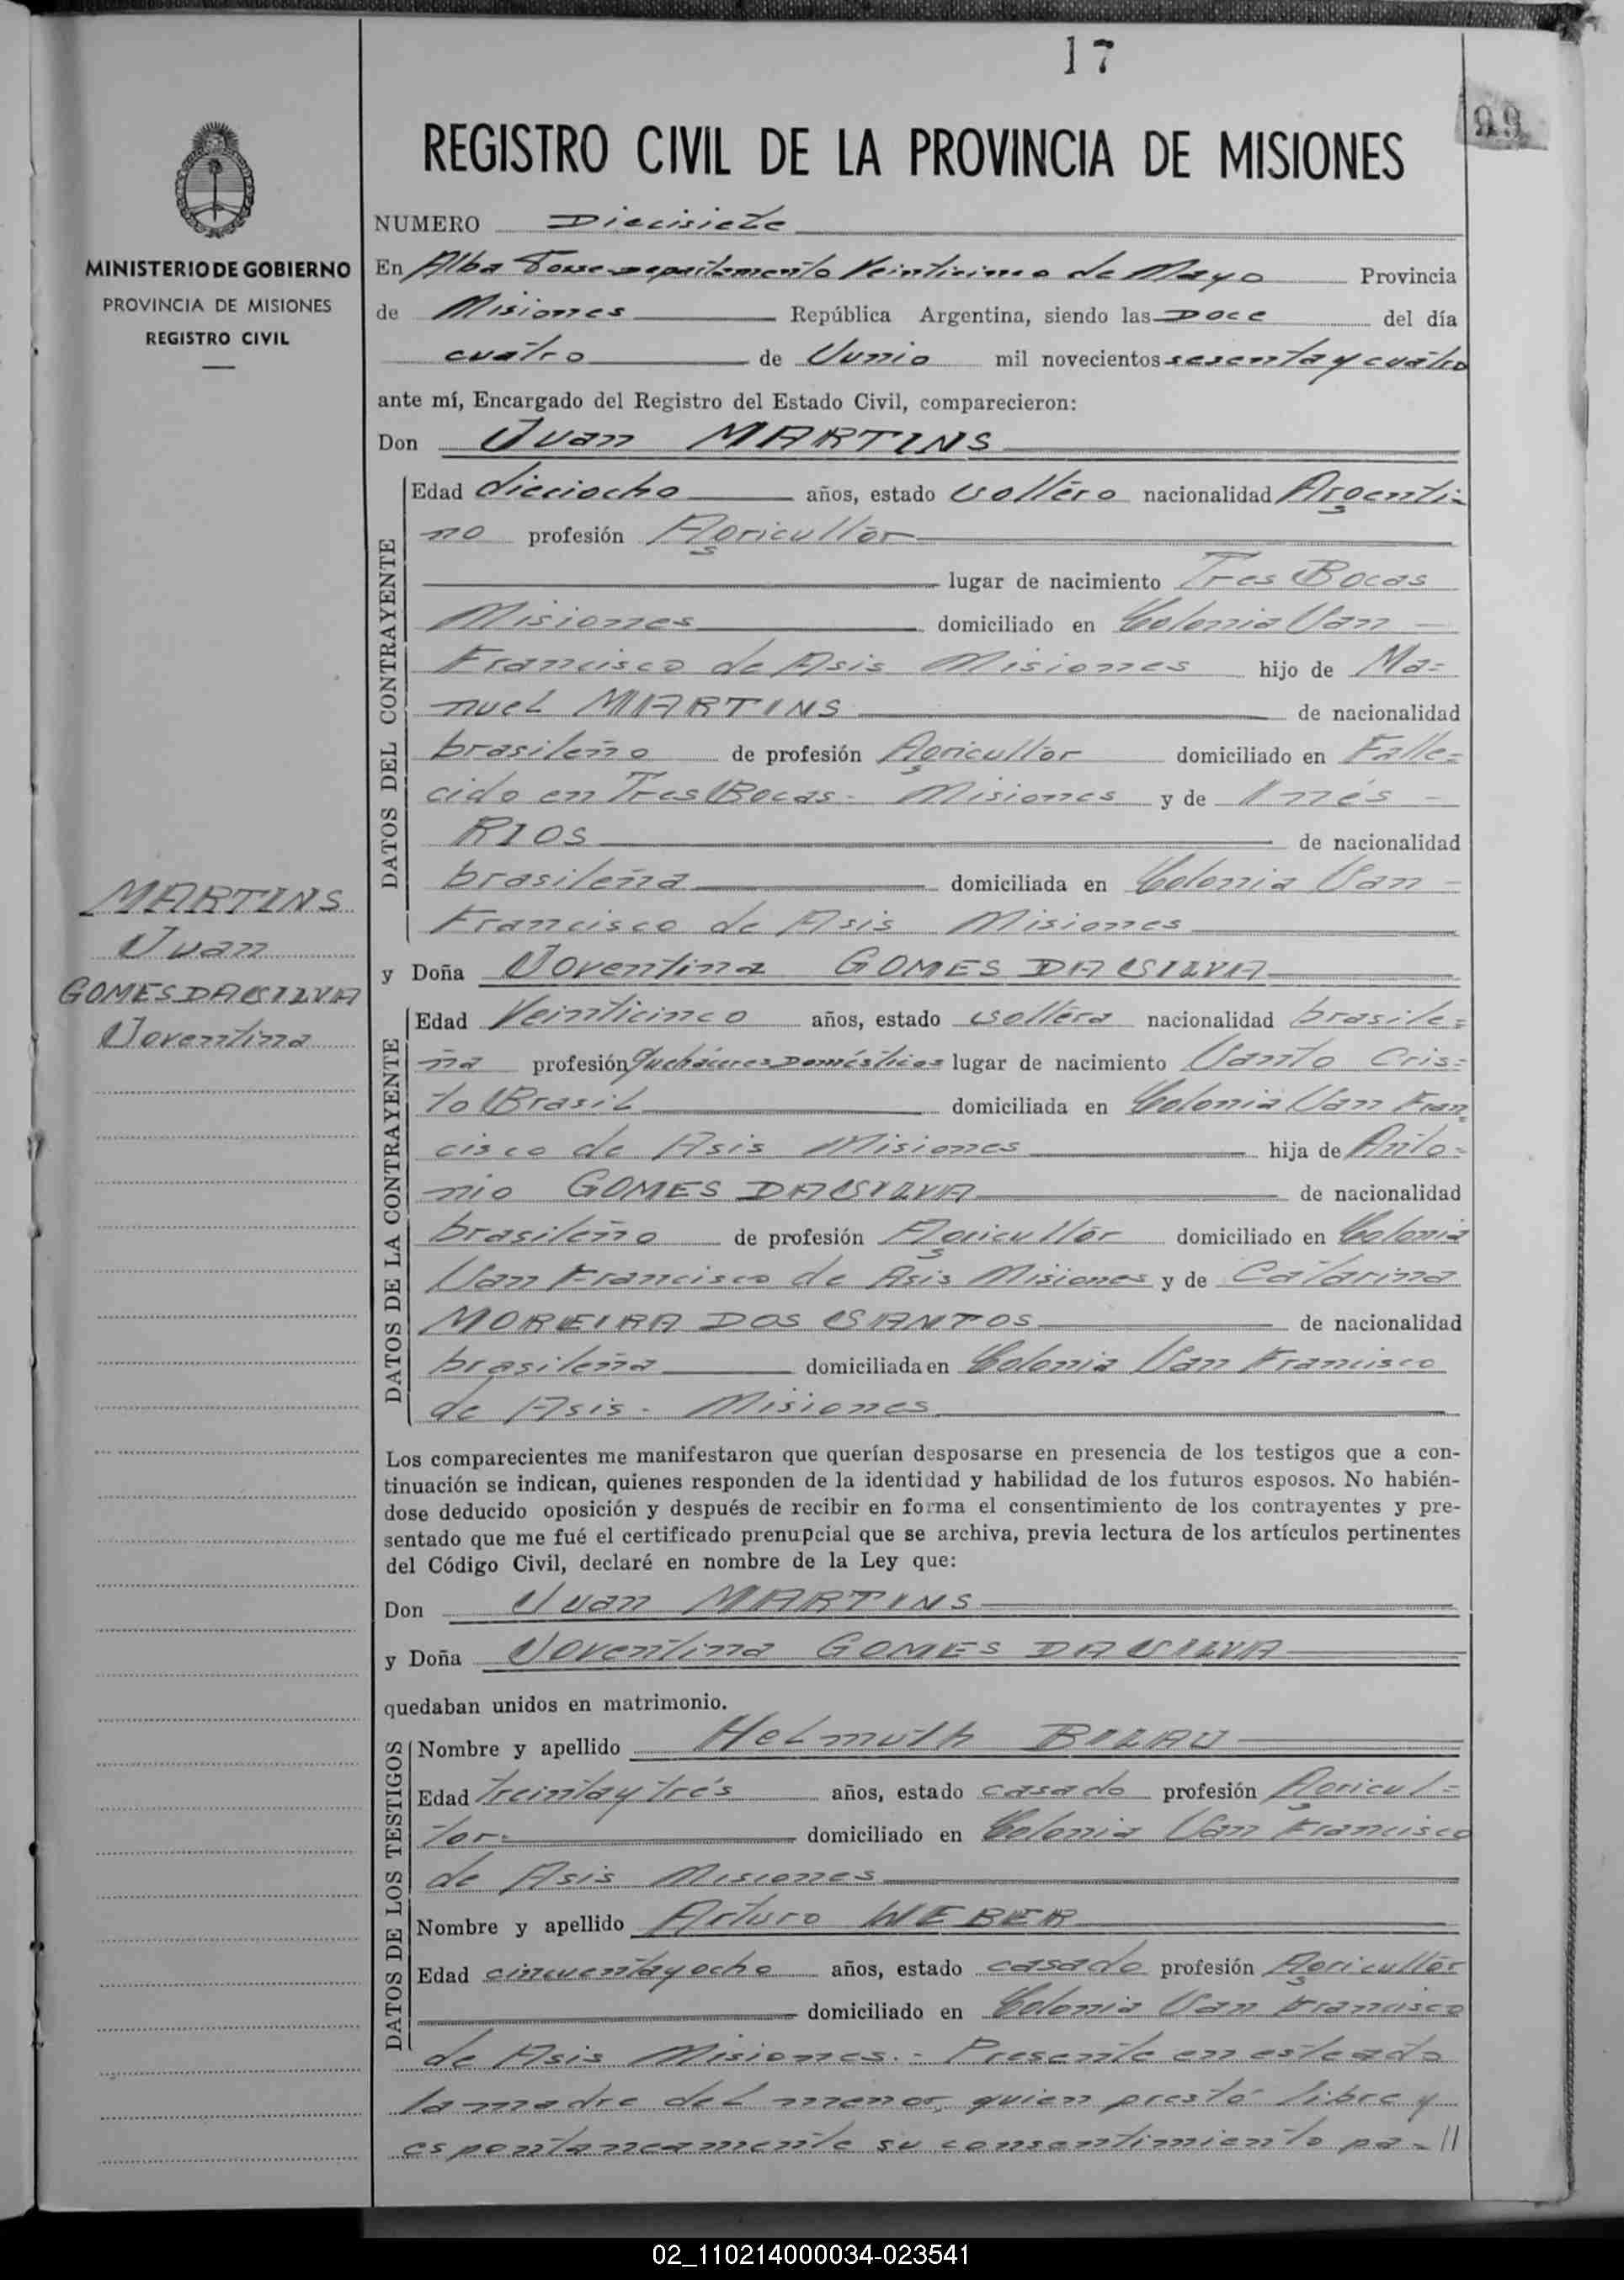 17
99
REGISTRO CIVIL DE LA PROVINCIA DE MISIONES
MINISTERIO DE GOBIERNO
PROVINCIA DE MISIONES
REGISTRO CIVIL
NUMERO Diecisiete
En Alba Posse Departamento Veinticinco de Mayo Provincia
de Misiones República Argentina, siendo las Doce del día
cuatro de Junio mil novecientos sesenta y cuatro
ante mí, Encargado del Registro del Estado Civil, comparecieron:
Don Juan MARTINS
DATOS DEL CONTRAYENTE
Edad dieciocho años, estado soltero nacionalidad Argenti=
no profesión Agricultor
lugar de nacimiento Tres Bocas
Misiones domiciliado en Colonia San -
Francisco de Asis Misiones hijo de Ma=
nuel MARTINS de nacionalidad
brasileño de profesión Agricultor domiciliado en Falle=
cido en Tres Bocas - Misiones y de Inés -
RIOS de nacionalidad
brasileña domiciliada en Colonia San -
Francisco de Asis Misiones
MARTINS
Juan
GOMES DA SILVA
Joventina
y Doña Joventina GOMES DA SILVA
DATOS DE LA CONTRAYENTE
Edad Veinticinco años, estado soltera nacionalidad brasile=
ña profesión Quehaceres Domésticos lugar de nacimiento Santo Cris=
to Brasil domiciliada en Colonia San Fran
cisco de Asis Misiones hija de Anto=
nio GOMES DA SILVA de nacionalidad
brasileño de profesión Agricultor domiciliado en Colonia
San Francisco de Asis Misiones y de Catarina
MOREIRA DOS SANTOS de nacionalidad
brasileña domiciliada en Colonia San Francisco
de Asis - Misiones
Los comparecientes me manifestaron que querían desposarse en presencia de los testigos que a con-
tinuación se indican, quienes responden de la identidad y habilidad de los futuros esposos. No habién-
dose deducido oposición y después de recibir en forma el consentimiento de los contrayentes y pre-
sentado que me fué el certificado prenupcial que se archiva, previa lectura de los artículos pertinentes
del Código Civil, declaré en nombre de la Ley que:
Don Juan MARTINS
y Doña Joventina GOMES DA SILVA
quedaban unidos en matrimonio.
DATOS DE LOS TESTIGOS
Nombre y apellido Helmuth BILAU
Edad treinta y trés años, estado casado profesión Agricul=
tor- domiciliado en Colonia San Francisco
de Asis Misiones
Nombre y apellido Arturo WEBER
Edad cincuenta y ocho años, estado casado profesión Agricultor
domiciliado en Colonia San Francisco
de Asis Misiones.- Presente en este acto
la madre del menor, quien prestó libre y
espontaneamente su consentimiento pa- //
02_110214000034-023541